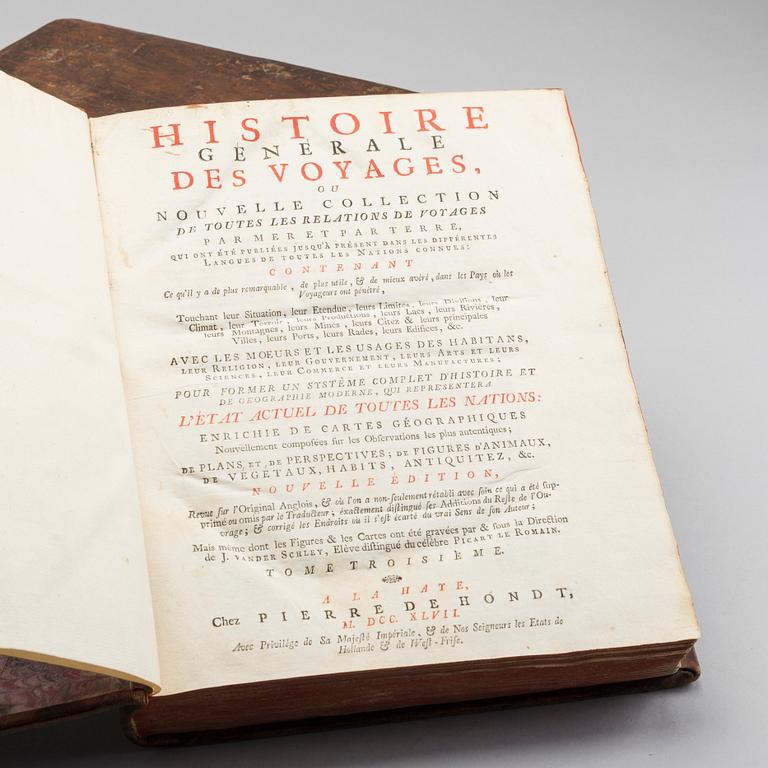 HISTOIRE
GENERALE
DES VOYAGES,
OU
NOUVELLE COLLECTION
DE TOUTES LES RELATIONS DE VOYAGES
PAR MER ET PAR TERRE,
QUI ONT ÉTÉ PUBLIÉES JUSQU'À PRÉSENT DANS LES DIFFÉRENTES
LANGUES DE TOUTES LES NATIONS CONNUES:
CONTENANT
Ce qu'il y a de plus remarquable, de plus utile, & de mieux avéré, dans les Pays où les
Voyageurs ont pénétré,
Touchant leur Situation, leur Etendue, leurs Limites, leurs Divisions, leur
Climat, leur Terroir, leurs Productions, leurs Lacs, leurs Rivières,
leurs Montagnes, leurs Mines, leurs Citez & leurs principales
Villes, leurs Ports, leurs Rades, leurs Edifices, &c.
AVEC LES MŒURS ET LES USAGES DES HABITANS,
LEUR RELIGION, LEUR GOUVERNEMENT, LEURS ARTS ET LEURS
SCIENCES, LEUR COMMERCE ET LEURS MANUFACTURES;
POUR FORMER UN SYSTÈME COMPLET D'HISTOIRE ET
DE GÉOGRAPHIE MODERNE, QUI REPRESENTERA
L'ÉTAT ACTUEL DE TOUTES LES NATIONS:
ENRICHIE DE CARTES GÉOGRAPHIQUES
Nouvellement composées sur les Observations les plus autentiques;
DE PLANS, ET DE PERSPECTIVES; DE FIGURES D'ANIMAUX,
DE VÉGÉTAUX, HABITS, ANTIQUITEZ, &c.
NOUVELLE ÉDITION,
Revue sur l'Original Anglois, & où l'on a non-seulement rétabli avec soin ce qui a été sup-
primé ou omis par le Traducteur; exactement distingué ses Additions du Reste de l'Ou-
vrage; & corrigé les Endroits où il s'est écarté du vrai Sens de son Auteur;
Mais même dont les Figures & les Cartes ont été gravées par & sous la Direction
de J. VANDER SCHLEY, Elève distingué du célèbre PICART LE ROMAIN.
TOME TROISIEME.
A LA HAYE,
Chez PIERRE DE HONDT,
M. DCC. XLVII.
Avec Privilège de Sa Majesté Impériale, & de Nos Seigneurs les Etats de
Hollande & de West-Frise.